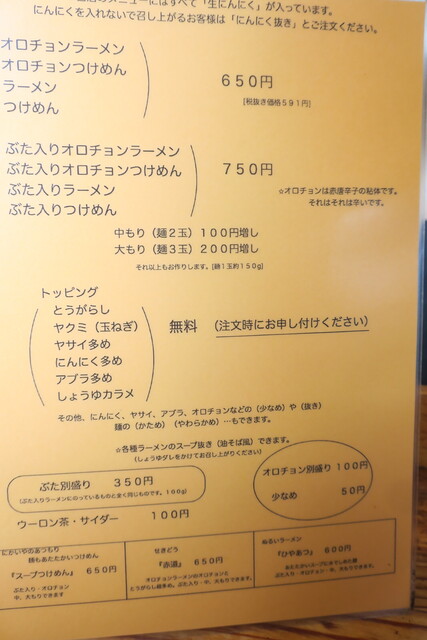 メニューにはすべて「生にんにく」が入っています。
にんにくを入れないで召し上がるお客様は「にんにく抜き」とご注文ください。
オロチョンラーメン
オロチョンつけめん
ラーメン
つけめん
650円
[税抜き価格591円]
ぶた入りオロチョンラーメン
ぶた入りオロチョンつけめん
ぶた入りラーメン
ぶた入りつけめん
750円
☆オロチョンは赤唐辛子の粘体です。
それはそれは辛いです。
中もり（麺2玉）100円増し
大もり（麺3玉）200円増し
それ以上もお作りします。[麺1玉約150g]
トッピング
とうがらし
ヤクミ（玉ねぎ）
ヤサイ多め
にんにく多め
アブラ多め
しょうゆカラメ
無料 （注文時にお申し付けください）
その他、にんにく、ヤサイ、アブラ、オロチョンなどの（少なめ）や（抜き）
麺の（かため）（やわらかめ）…もできます。
☆各種ラーメンのスープ抜き（油そば風）できます。
（しょうゆダレをかけてお召し上がりください）
ぶた別盛り 350円
（ぶた入りラーメンにのっているものと全く同じものです。160g）
オロチョン別盛り 100円
少なめ 50円
ウーロン茶・サイダー 100円
にかいやのあつもり
麺もあたたかいつけめん
『スープつけめん』 650円
ぶた入り・オロチョン
中、大もりできます
せきどう
『赤道』 650円
オロチョンラーメンのオロチョンと
とうがらし越多め。ぶた入り・中、大もりできます。
ぬるいラーメン
『ひやあつ』 600円
ぶた入り・オロチョン・中、大もりできます。